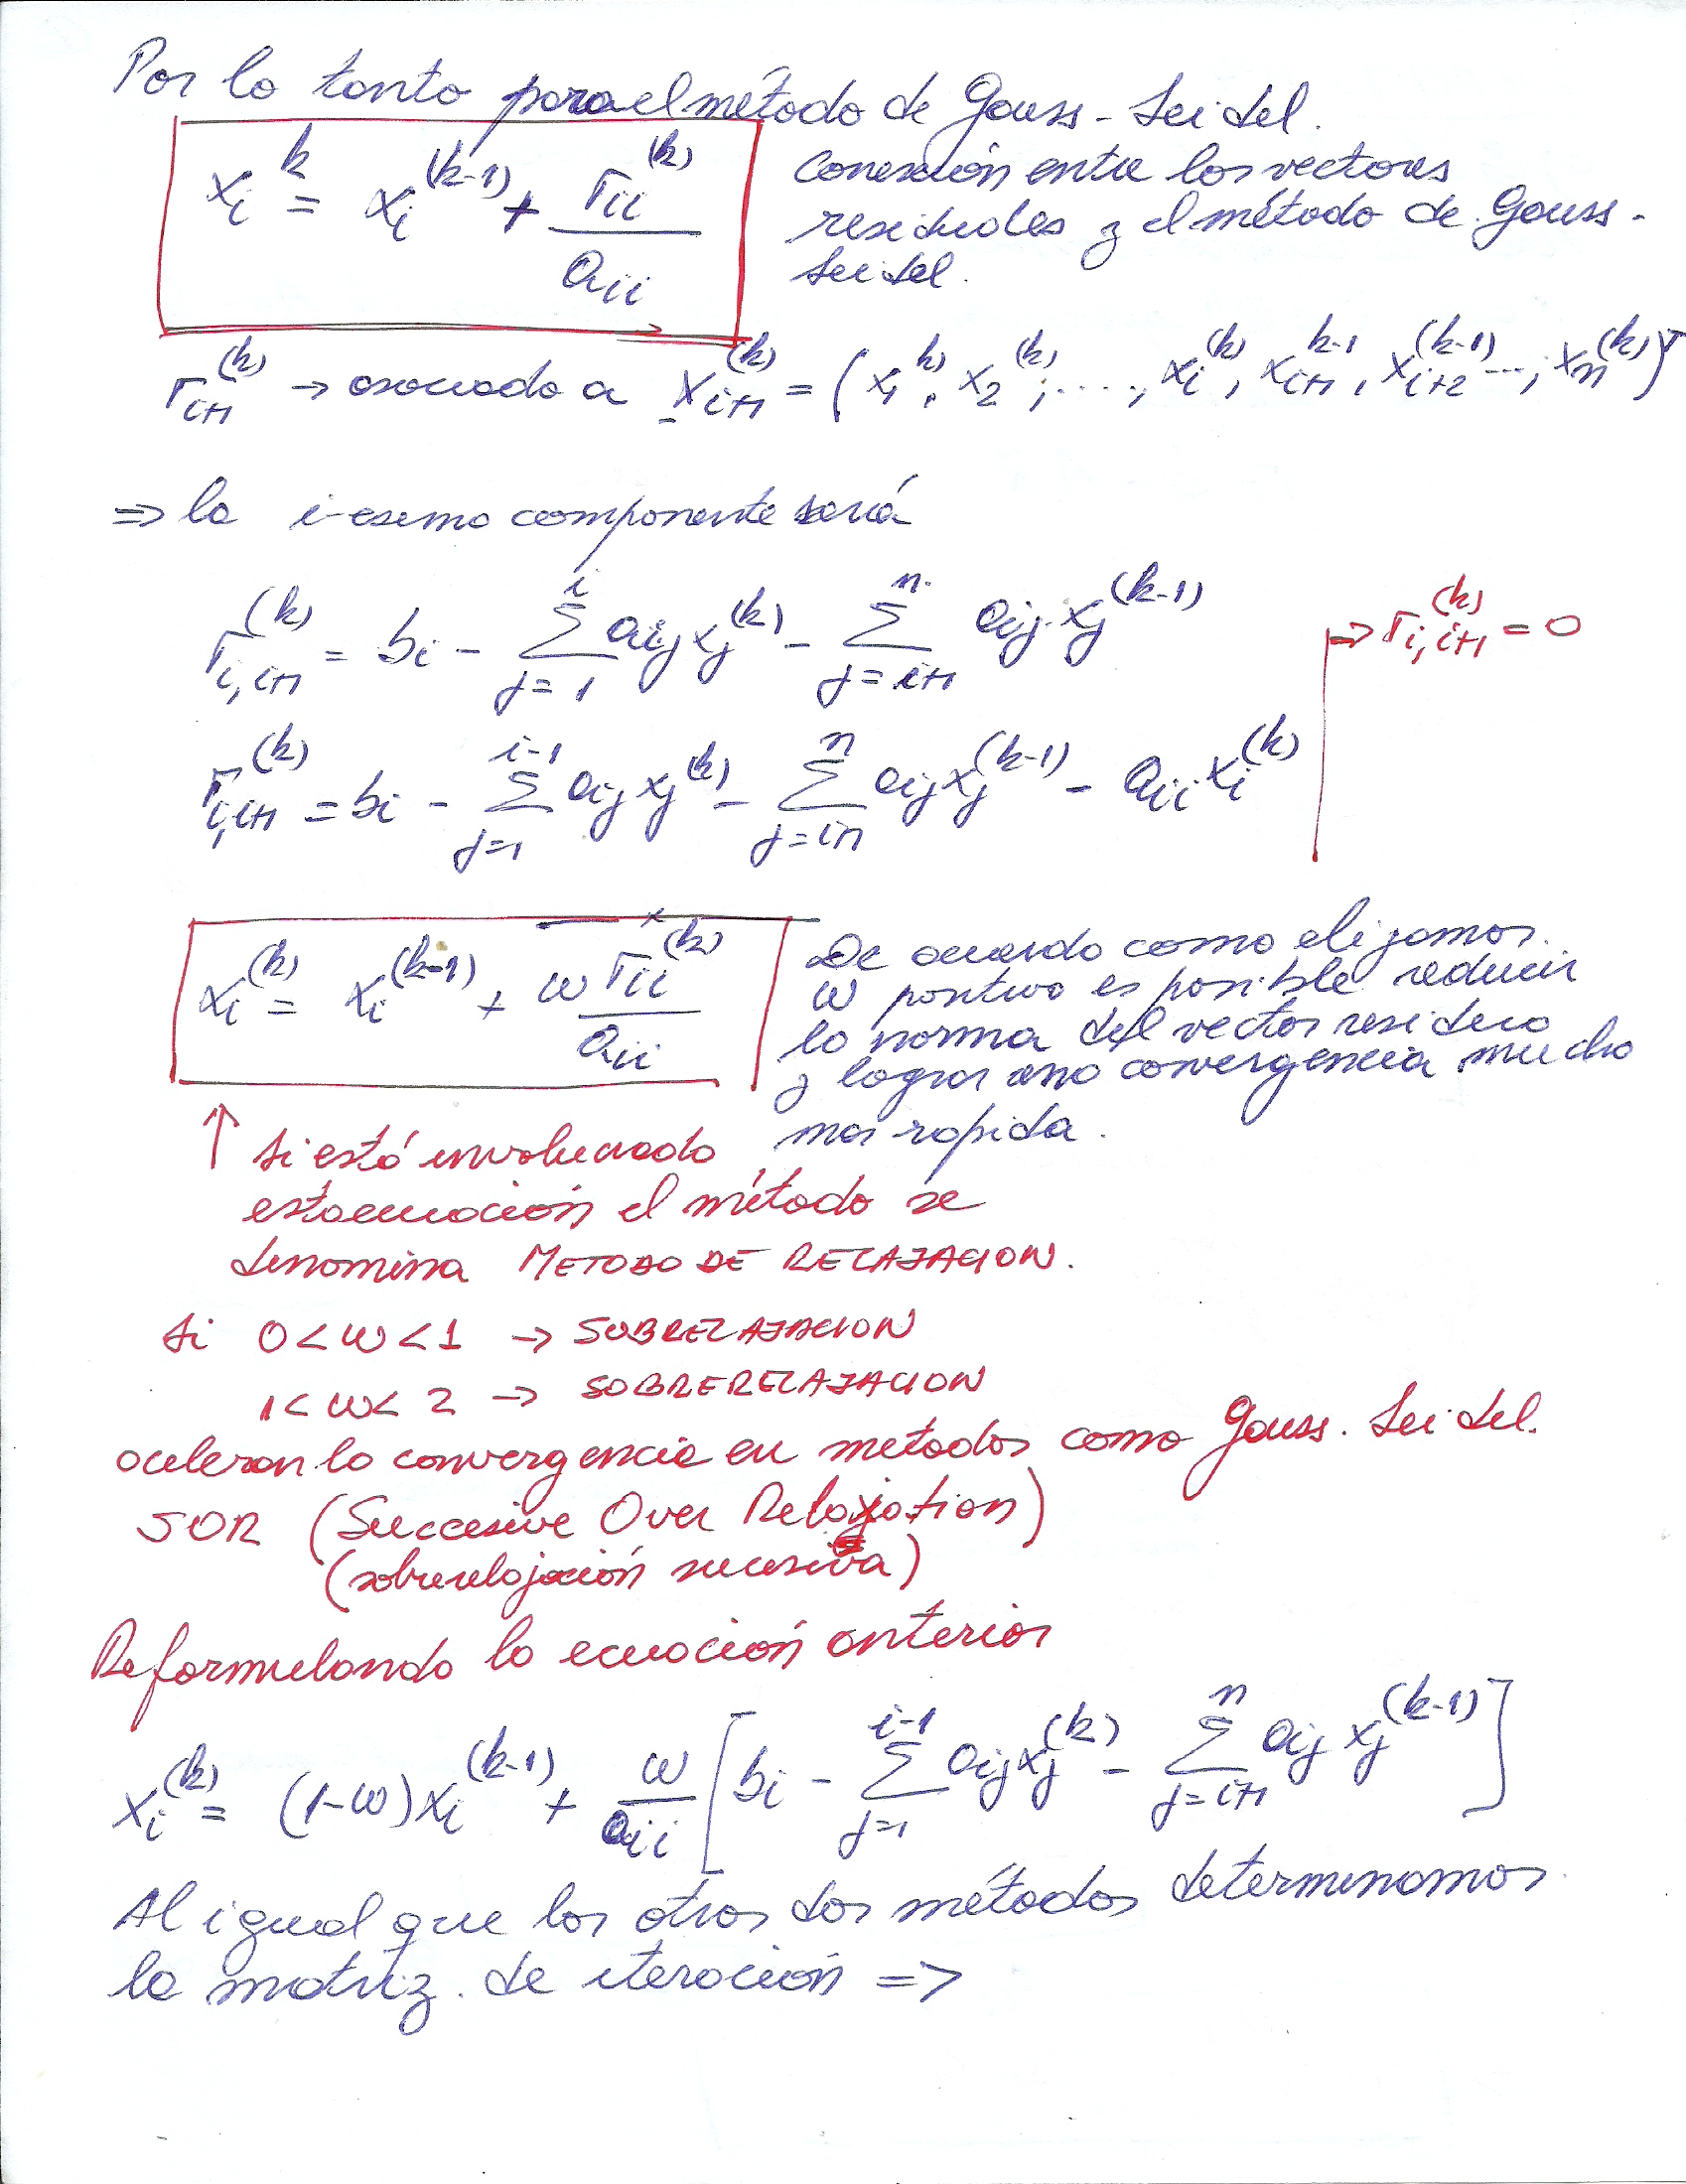 Por lo tanto para el método de Gauss-Seidel.
xᵢᵏ = xᵢ⁽ᵏ⁻¹⁾ + rᵢᵢ⁽ᵏ⁾ / aᵢᵢ
Conexión entre los vectores
residuales y el método de Gauss-
Seidel.
rᵢ₊₁⁽ᵏ⁾ → asociado a xᵢ₊₁⁽ᵏ⁾ = (x₁ᵏ⁾, x₂⁽ᵏ⁾, ...., xᵢ⁽ᵏ⁾, xᵢ₊₁ᵏ⁻¹, xᵢ₊₂⁽ᵏ⁻¹⁾ ..., xₙ⁽ᵏ⁾)ᵀ
⇒ la i-esema componente será
r_{i,i+1}^{(k)} = bi - Σ_{j=1}^{i} aij xj^{(k)} - Σ_{j=i+1}^{n} aij xj^{(k-1)}
⇒ r_{i,i+1}^{(k)} = 0
r_{i,i+1}^{(k)} = bi - Σ_{j=1}^{i-1} aij xj^{(k)} - Σ_{j=i+1}^{n} aij xj^{(k-1)} - aii xi^{(k)}
xi^{(k)} = xi^{(k-1)} + ω rii^{(k)} / aii
De acuerdo como elijamos
ω positivo es posible reducir
la norma del vector residuo
y lograr una convergencia mucho
mas rapida.
↑ Si está involucrado
esta ecuación el método se
denomina METODO DE RELAJACION.
Si 0 < ω < 1 → SUBRELAJACION
1 < ω < 2 → SOBRERELAJACION
aceleran la convergencia en metodos como Gauss. Seidel.
SOR (Succesive Over Relaxation)
(sobrerelajación sucesiva)
Reformulando la ecuación anterior
xi^{(k)} = (1-ω)xi^{(k-1)} + ω/aii [bi - Σ_{j=1}^{i-1} aij xj^{(k)} - Σ_{j=i+1}^{n} aij xj^{(k-1)}]
Al igual que los otros dos métodos determinamos
la matriz. de iteración =>